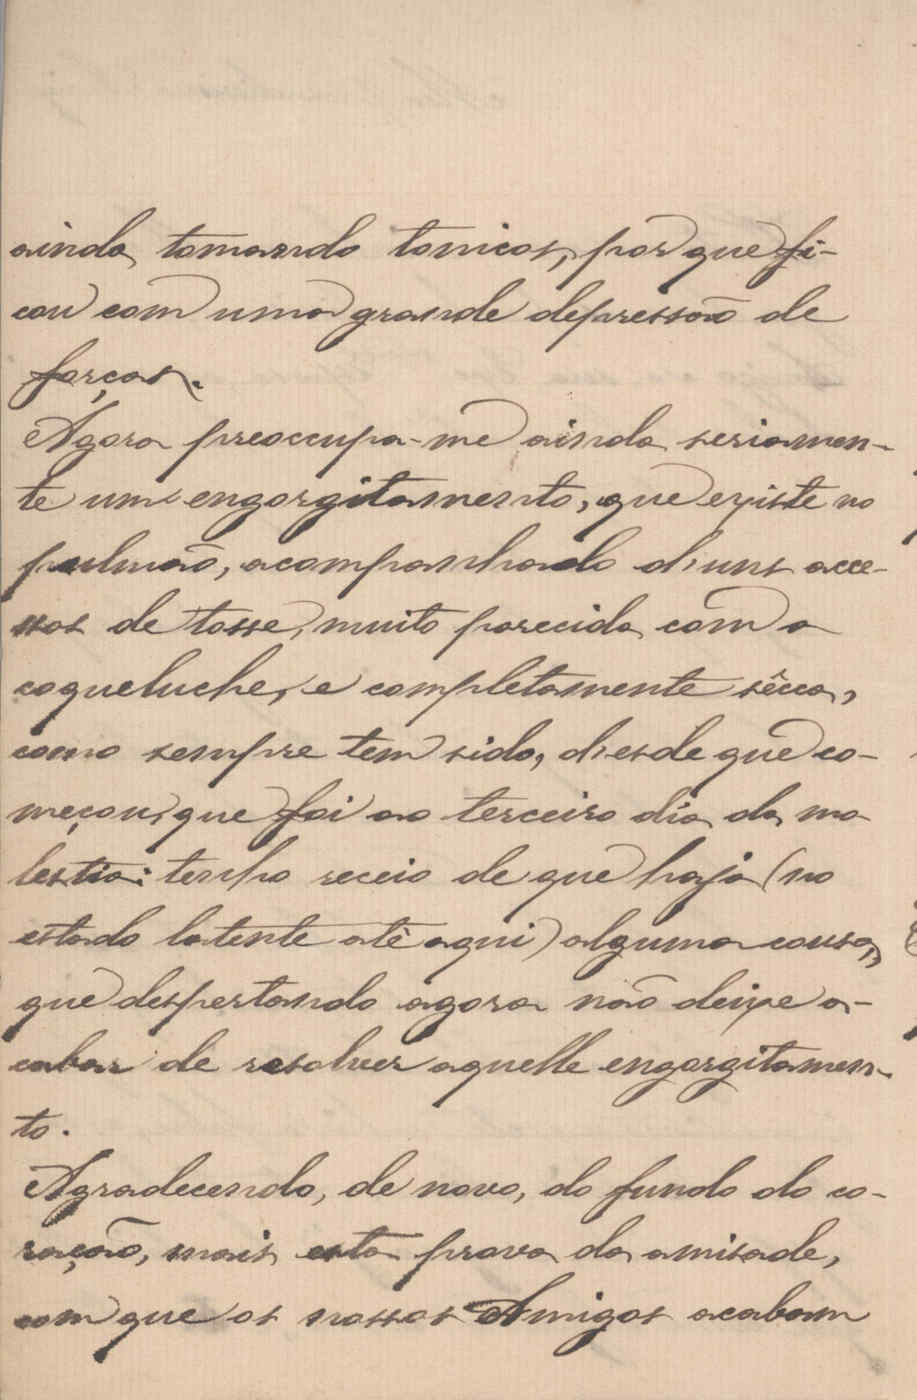 ainda tomando tonicos, por que fi-
cou com uma grande depressão de
forças.
Agora preoccupa-me ainda seriamen-
te um engorgitamento, que existe no
pulmão, acompanhado d'uns acce-
ssos de tosse, muito parecida com a
coqueluche, e completamente sêcca,
como sempre tem sido, desde que co-
meçou, que foi ao terceiro dia da mo
lestia: tenho receio de que haja (no
estado latente atè aqui) alguma cousa,
que despertando agora não deixe a-
cabar de resolver aquelle engorgitamen-
to.
Agradecendo, de novo, do fundo do co-
ração, mais esta prova da amisade,
com que os nossos Amigos acabam